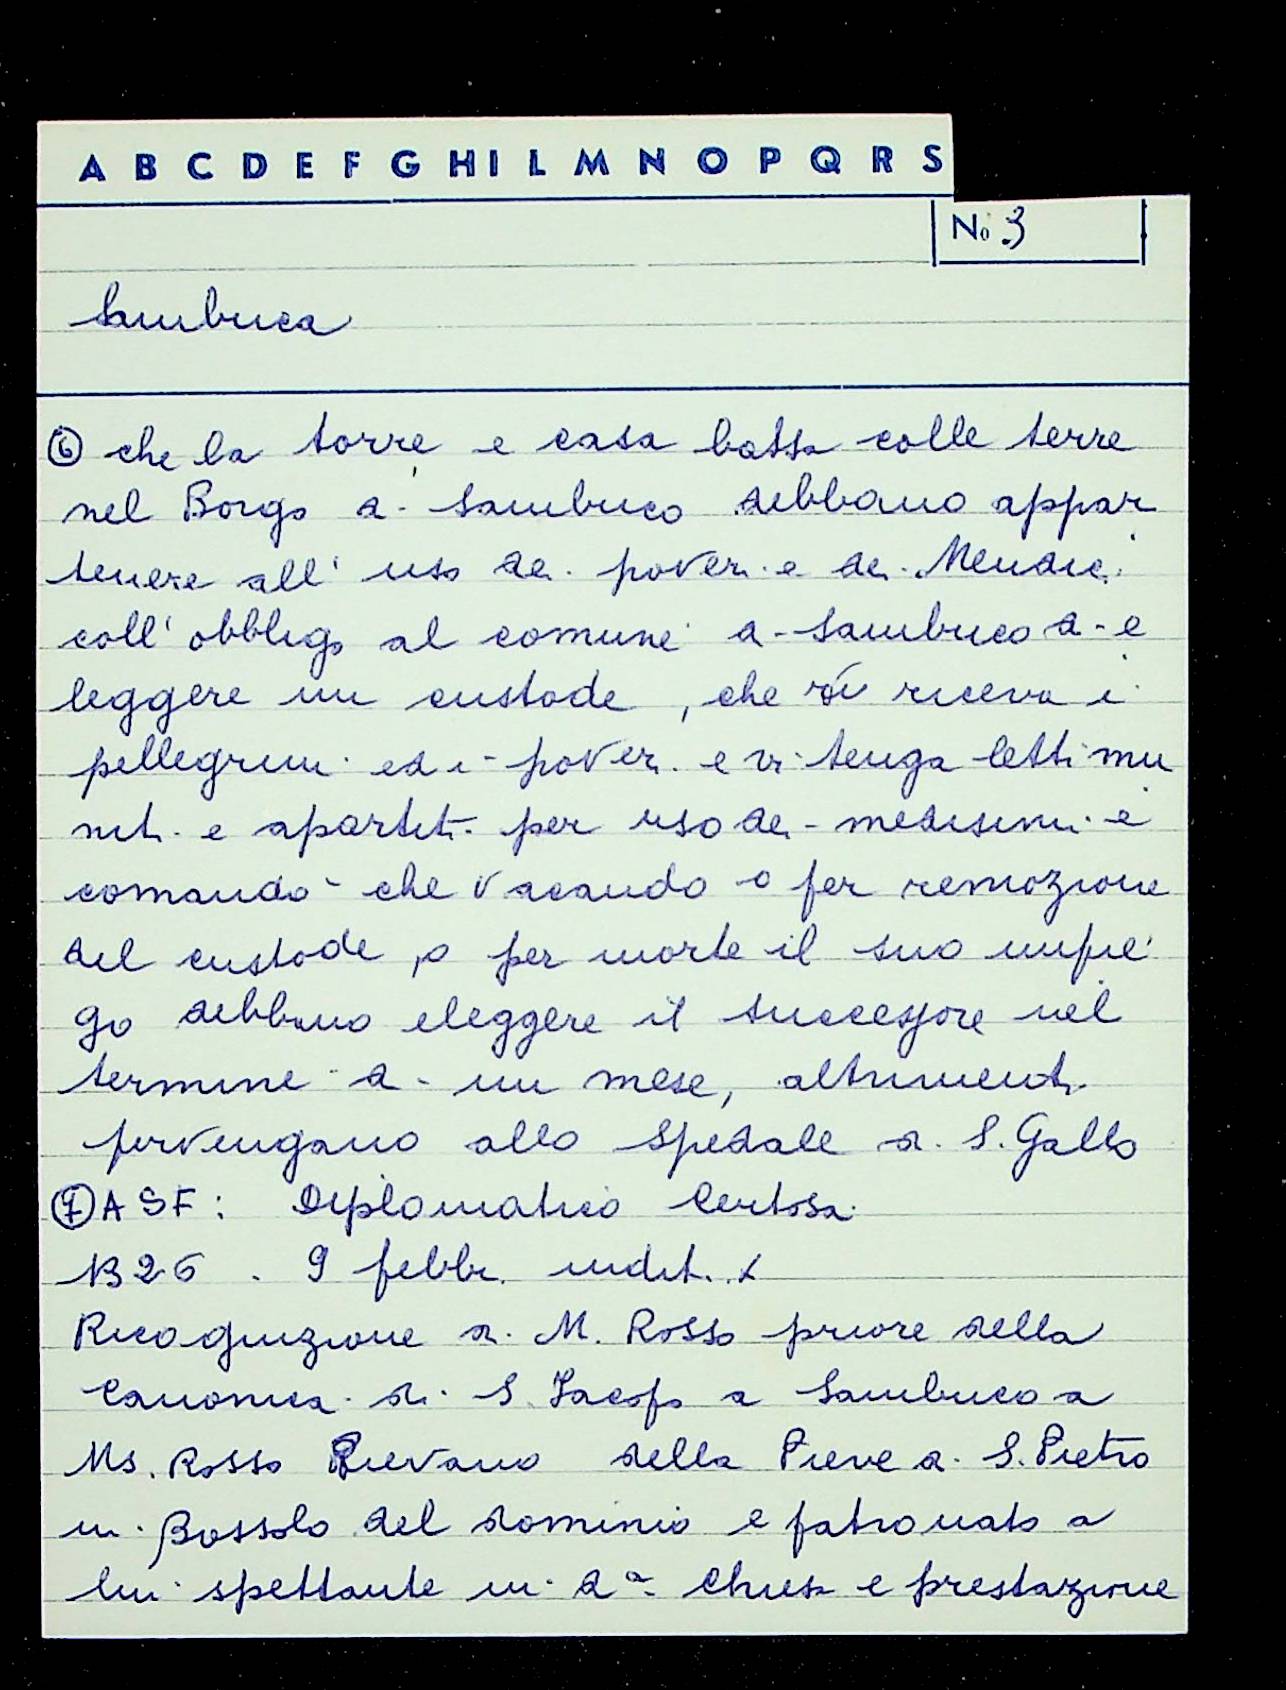 A B C D E F G H I L M N O P Q R S
No 3
Sambuca
⑥ che la torre e casa bassa colle terre
nel Borgo di Sambuco debbano appar
tenere all' uso dei poveri e dei Mendici
coll' obbligo al comune di Sambuco di e
leggere un custode, che vi riceva i
pellegrini ed i poveri e vi tenga letti mu
niti e apartiti per uso dei medesimi e
comando che vacando o per remozione
del custode, o per morte il suo impie
go debbano eleggere il successore nel
termine di un mese, altrimenti
pervengano allo Spedale di S. Gallo
⑦ ASF: Diplomatico Certosa
1326. 9 febbr. indit. X
Ricognizione di M. Rosso priore della
Canonica di S. Jacopo a Sambuco a
Ms. Rosso Pievano della Pieve di S. Pietro
in Bossolo del dominio e patronato a
lui spettante in da Chiesa e prestazione